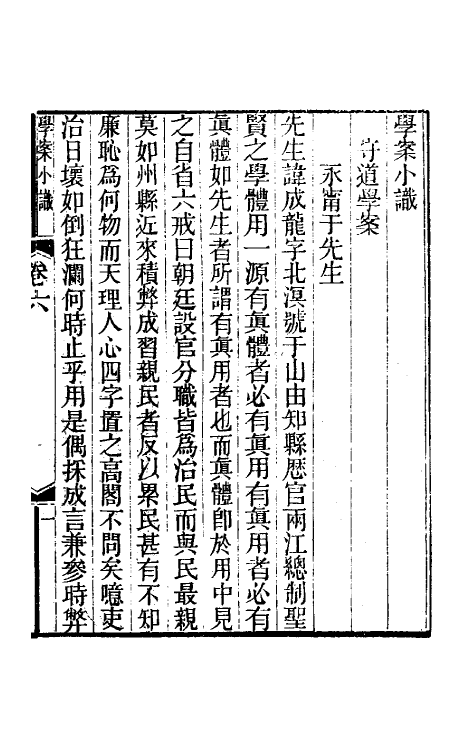 學案小識
守道學案
永甯于先生
先生諱成龍字北溟號于山由知縣歷官兩江總制聖
賢之學體用一源有眞體者必有眞用有眞用者必有
眞體如先生者所謂有眞用者也而眞體卽於用中見
之自省六戒曰朝廷設官分職皆爲治民而與民最親
莫如州縣近來積弊成習親民者反以累民甚有不知
廉恥爲何物而天理人心四字置之高閣不問矣噫吏
治日壞如倒狂瀾何時止乎用是偶採成言兼參時弊
學案小識
卷六
一